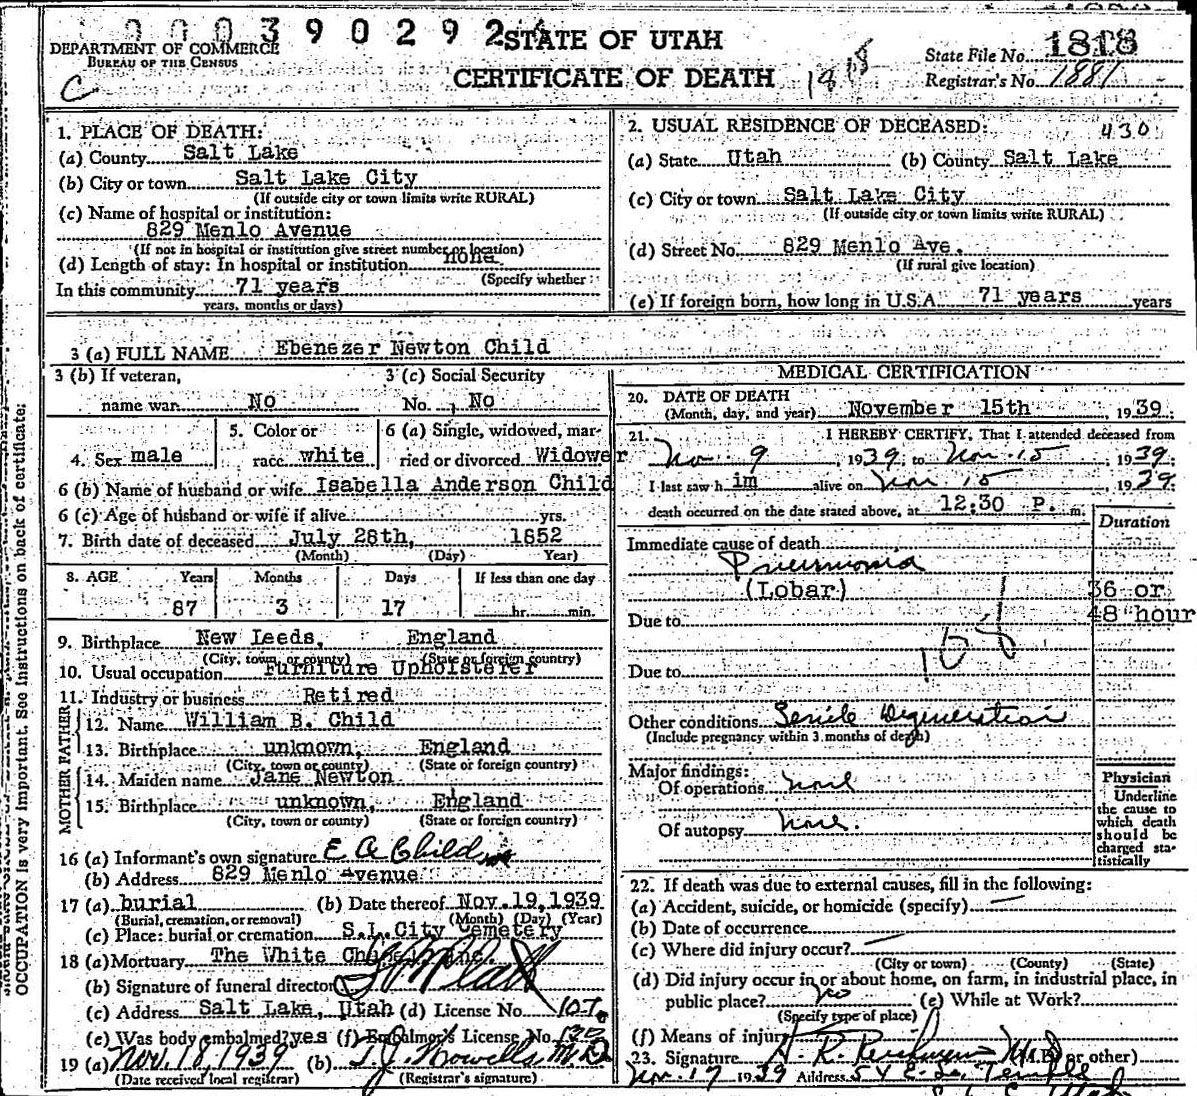 0003902924
STATE OF UTAH
CERTIFICATE OF DEATH
DEPARTMENT OF COMMERCE
BUREAU OF THE CENSUS
C
1818
State File No. 1818
Registrar's No. 1881
1. PLACE OF DEATH:
(a) County Salt Lake
(b) City or town Salt Lake City
(If outside city or town limits write RURAL)
(c) Name of hospital or institution:
829 Menlo Avenue
(If not in hospital or institution give street number or location)
(d) Length of stay: In hospital or institution none
(Specify whether
In this community 71 years
years, months or days)
2. USUAL RESIDENCE OF DECEASED: 430
(a) State Utah (b) County Salt Lake
(c) City or town Salt Lake City
(If outside city or town limits write RURAL)
(d) Street No. 829 Menlo Ave.
(If rural give location)
(e) If foreign born, how long in U.S.A. 71 years years
3 (a) FULL NAME Ebenezer Newton Child
3 (b) If veteran,
name war No
3 (c) Social Security
No. No
4. Sex male
5. Color or
race white
6 (a) Single, widowed, mar-
ried or divorced Widower
6 (b) Name of husband or wife Isabella Anderson Child
6 (c) Age of husband or wife if alive yrs.
7. Birth date of deceased July 28th, 1852
(Month) (Day) Year)
8. AGE Years Months Days If less than one day
87 3 17 hr. min.
9. Birthplace New Leeds, England
(City, town, or county) (State or foreign country)
10. Usual occupation Furniture Upholsterer
11. Industry or business Retired
FATHER
12. Name William B. Child
13. Birthplace unknown, England
(City, town or county) (State or foreign country)
MOTHER
14. Maiden name Jane Newton
15. Birthplace unknown, England
(City, town or county) (State or foreign country)
16 (a) Informant's own signature E A Child
(b) Address 829 Menlo Avenue
17 (a) burial (b) Date thereof Nov. 19, 1939
(Burial, cremation, or removal) (Month) (Day) (Year)
(c) Place: burial or cremation S.L. City Cemetery
18 (a) Mortuary The White
(b) Signature of funeral director
(c) Address Salt Lake, Utah (d) License No.
(e) Was body embalmed? yes (f) Embalmer's License No.
19 (a) Nov. 18, 1939 (b) T J Howells M.D.
(Date received local registrar) (Registrar's signature)
MEDICAL CERTIFICATION
20. DATE OF DEATH
(Month, day, and year) November 15th, 1939.
21. I HEREBY CERTIFY, That I attended deceased from
Nov 9, 1939, to Nov. 15, 1939.
I last saw h im alive on Nov 15, 1939.
death occurred on the date stated above, at 12:30 P. m.
Duration
Immediate cause of death
Pneumonia
(Lobar) 36 or
48 hour
Due to
108
Due to
Other conditions Senile Degeneration
(Include pregnancy within 3 months of death)
Major findings:
Of operations none
Of autopsy None.
Physician
Underline
the cause to
which death
should be
charged sta-
tistically
22. If death was due to external causes, fill in the following:
(a) Accident, suicide, or homicide (specify)
(b) Date of occurrence
(c) Where did injury occur?
(City or town) (County) (State)
(d) Did injury occur in or about home, on farm, in industrial place, in
public place? no (e) While at Work?
(Specify type of place)
(f) Means of injury
23. Signature (M.D. or other)
Nov. 17 1939 Address 54 E. So. Temple
OCCUPATION is very important. See instructions on back of certificate.